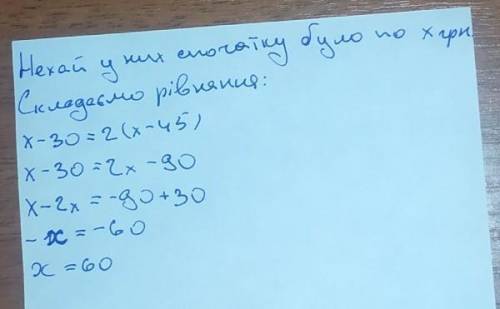 Нехай у них спочатку було по x грн
Складаємо рівняння:
x-30=2(x-45)
x-30=2x-90
x-2x=-90+30
-x=-60
x=60